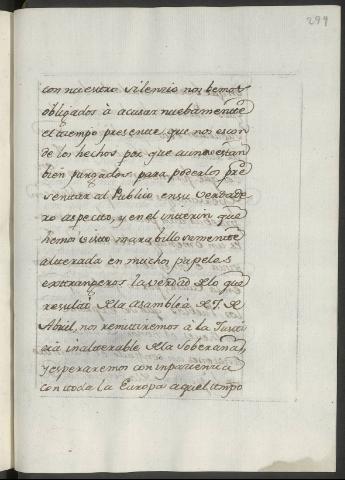 299
con nuestro silenzio nos bemos
obligados à acusar nuebamente
el tiempo presente que nos escon
de los hechos por que aun no estan
bien purgados para poderlos pre
sentar al Publico en su verdade
ro aspecto, y en el interin que
hemos visto marabillosamente
alterada en muchos papeles
extrangeros la verdad de lo que
resultó de la Asamblea de 7. de
Abril, nos remitiremos à la Justi
cia inalterable de la Soberana,
y esperaremos con inpaciencia
con toda la Europa aquel tiempo